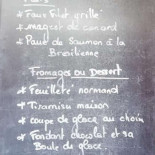 * Faux Filet grillé
* magret de canard
* Pavé de Saumon à la
Bresilienne
Fromages ou Dessert
* Feuilleté normand
* Tiramisu maison
* coupe de glace au choix
* Fondant chocolat et sa
Boule de glace